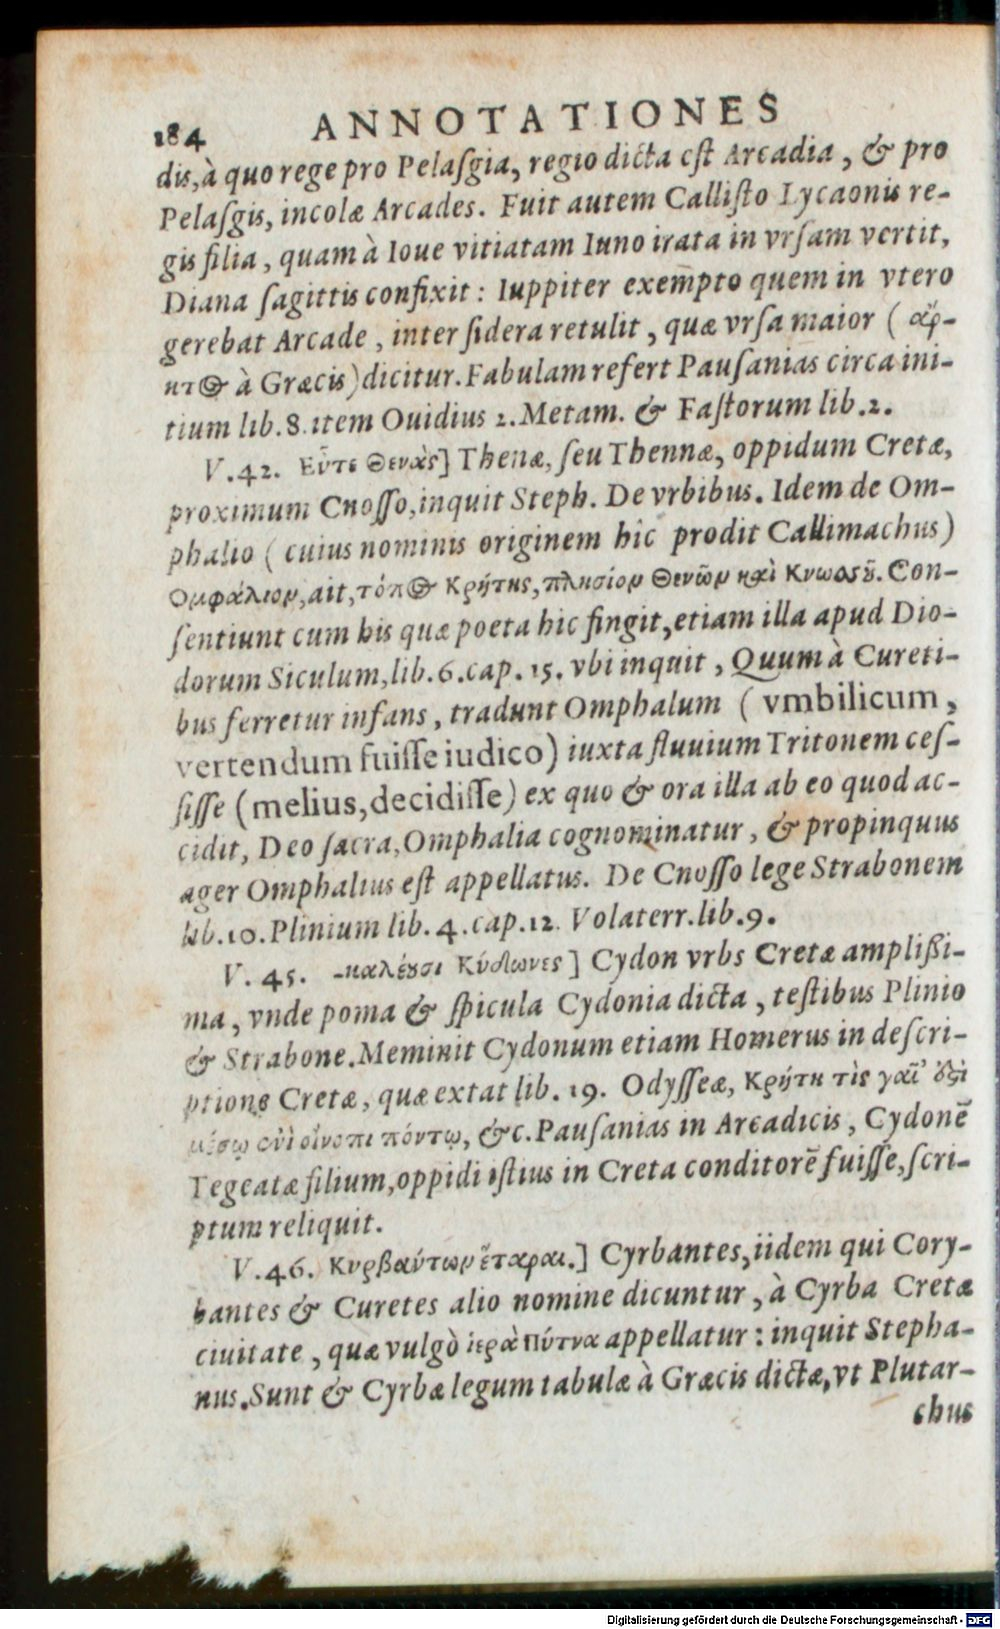 184 ANNOTATIONES
dis, à quo rege pro Pelaſgia, regio dicta eſt Arcadia, & pro
Pelaſgis, incolæ Arcades. Fuit autem Calliſto Lycaonis re-
gis filia, quam à Ioue vitiatam Iuno irata in vrſam vertit,
Diana ſagittis confixit: Iuppiter exempto quem in vtero
gerebat Arcade, inter ſidera retulit, quæ vrſa maior (ἄρ-
κτος à Græcis) dicitur. Fabulam refert Pauſanias circa ini-
tium lib. 8. item Ouidius 2. Metam. & Faſtorum lib. 2.
V. 42. Εὖτε Θενὰς] Thenæ, ſeu Thennæ, oppidum Cretæ,
proximum Cnoſſo, inquit Steph. De vrbibus. Idem de Om-
phalio (cuius nominis originem hîc prodit Callimachus)
Ομφάλιον, ait, τόπος Κρήτης, πλησίον Θενῶν καὶ Κνωσοῦ. Con-
ſentiunt cum his quæ poeta hic fingit, etiam illa apud Dio-
dorum Siculum, lib. 6. cap. 15. vbi inquit, Quum à Cureti-
bus ferretur infans, tradunt Omphalum (vmbilicum,
vertendum fuiſſe iudico) iuxta fluuium Tritonem ceſ-
ſiſſe (melius, decidiſſe) ex quo & ora illa ab eo quod ac-
cidit, Deo ſacra, Omphalia cognominatur, & propinquus
ager Omphalius eſt appellatus. De Cnoſſo lege Strabonem
lib. 10. Plinium lib. 4. cap. 12. Volaterr. lib. 9.
V. 45. -καλέουσι Κύδωνες] Cydon vrbs Cretæ amplißi-
ma, vnde poma & ſpicula Cydonia dicta, teſtibus Plinio
& Strabone. Meminit Cydonum etiam Homerus in deſcri-
ptione Cretæ, quæ extat lib. 19. Odyſſeæ, Κρήτη τὶς γαῖ' ἐςὶ
μέσῳ ἐνὶ οἴνοπι πόντῳ, &c. Pauſanias in Arcadicis, Cydonē
Tegeatæ filium, oppidi iſtius in Creta conditorē fuiſſe, ſcri-
ptum reliquit.
V. 46. Κυρβαύτων ἕταραι.] Cyrbantes, iidem qui Cory-
bantes & Curetes alio nomine dicuntur, à Cyrba Cretæ
ciuitate, quæ vulgò ἱερὰ Πύτνα appellatur: inquit Stepha-
nus. Sunt & Cyrbæ legum tabulæ à Græcis dictæ, vt Plutar-
chus
Digitalisierung gefördert durch die Deutsche Forschungsgemeinschaft - DFG